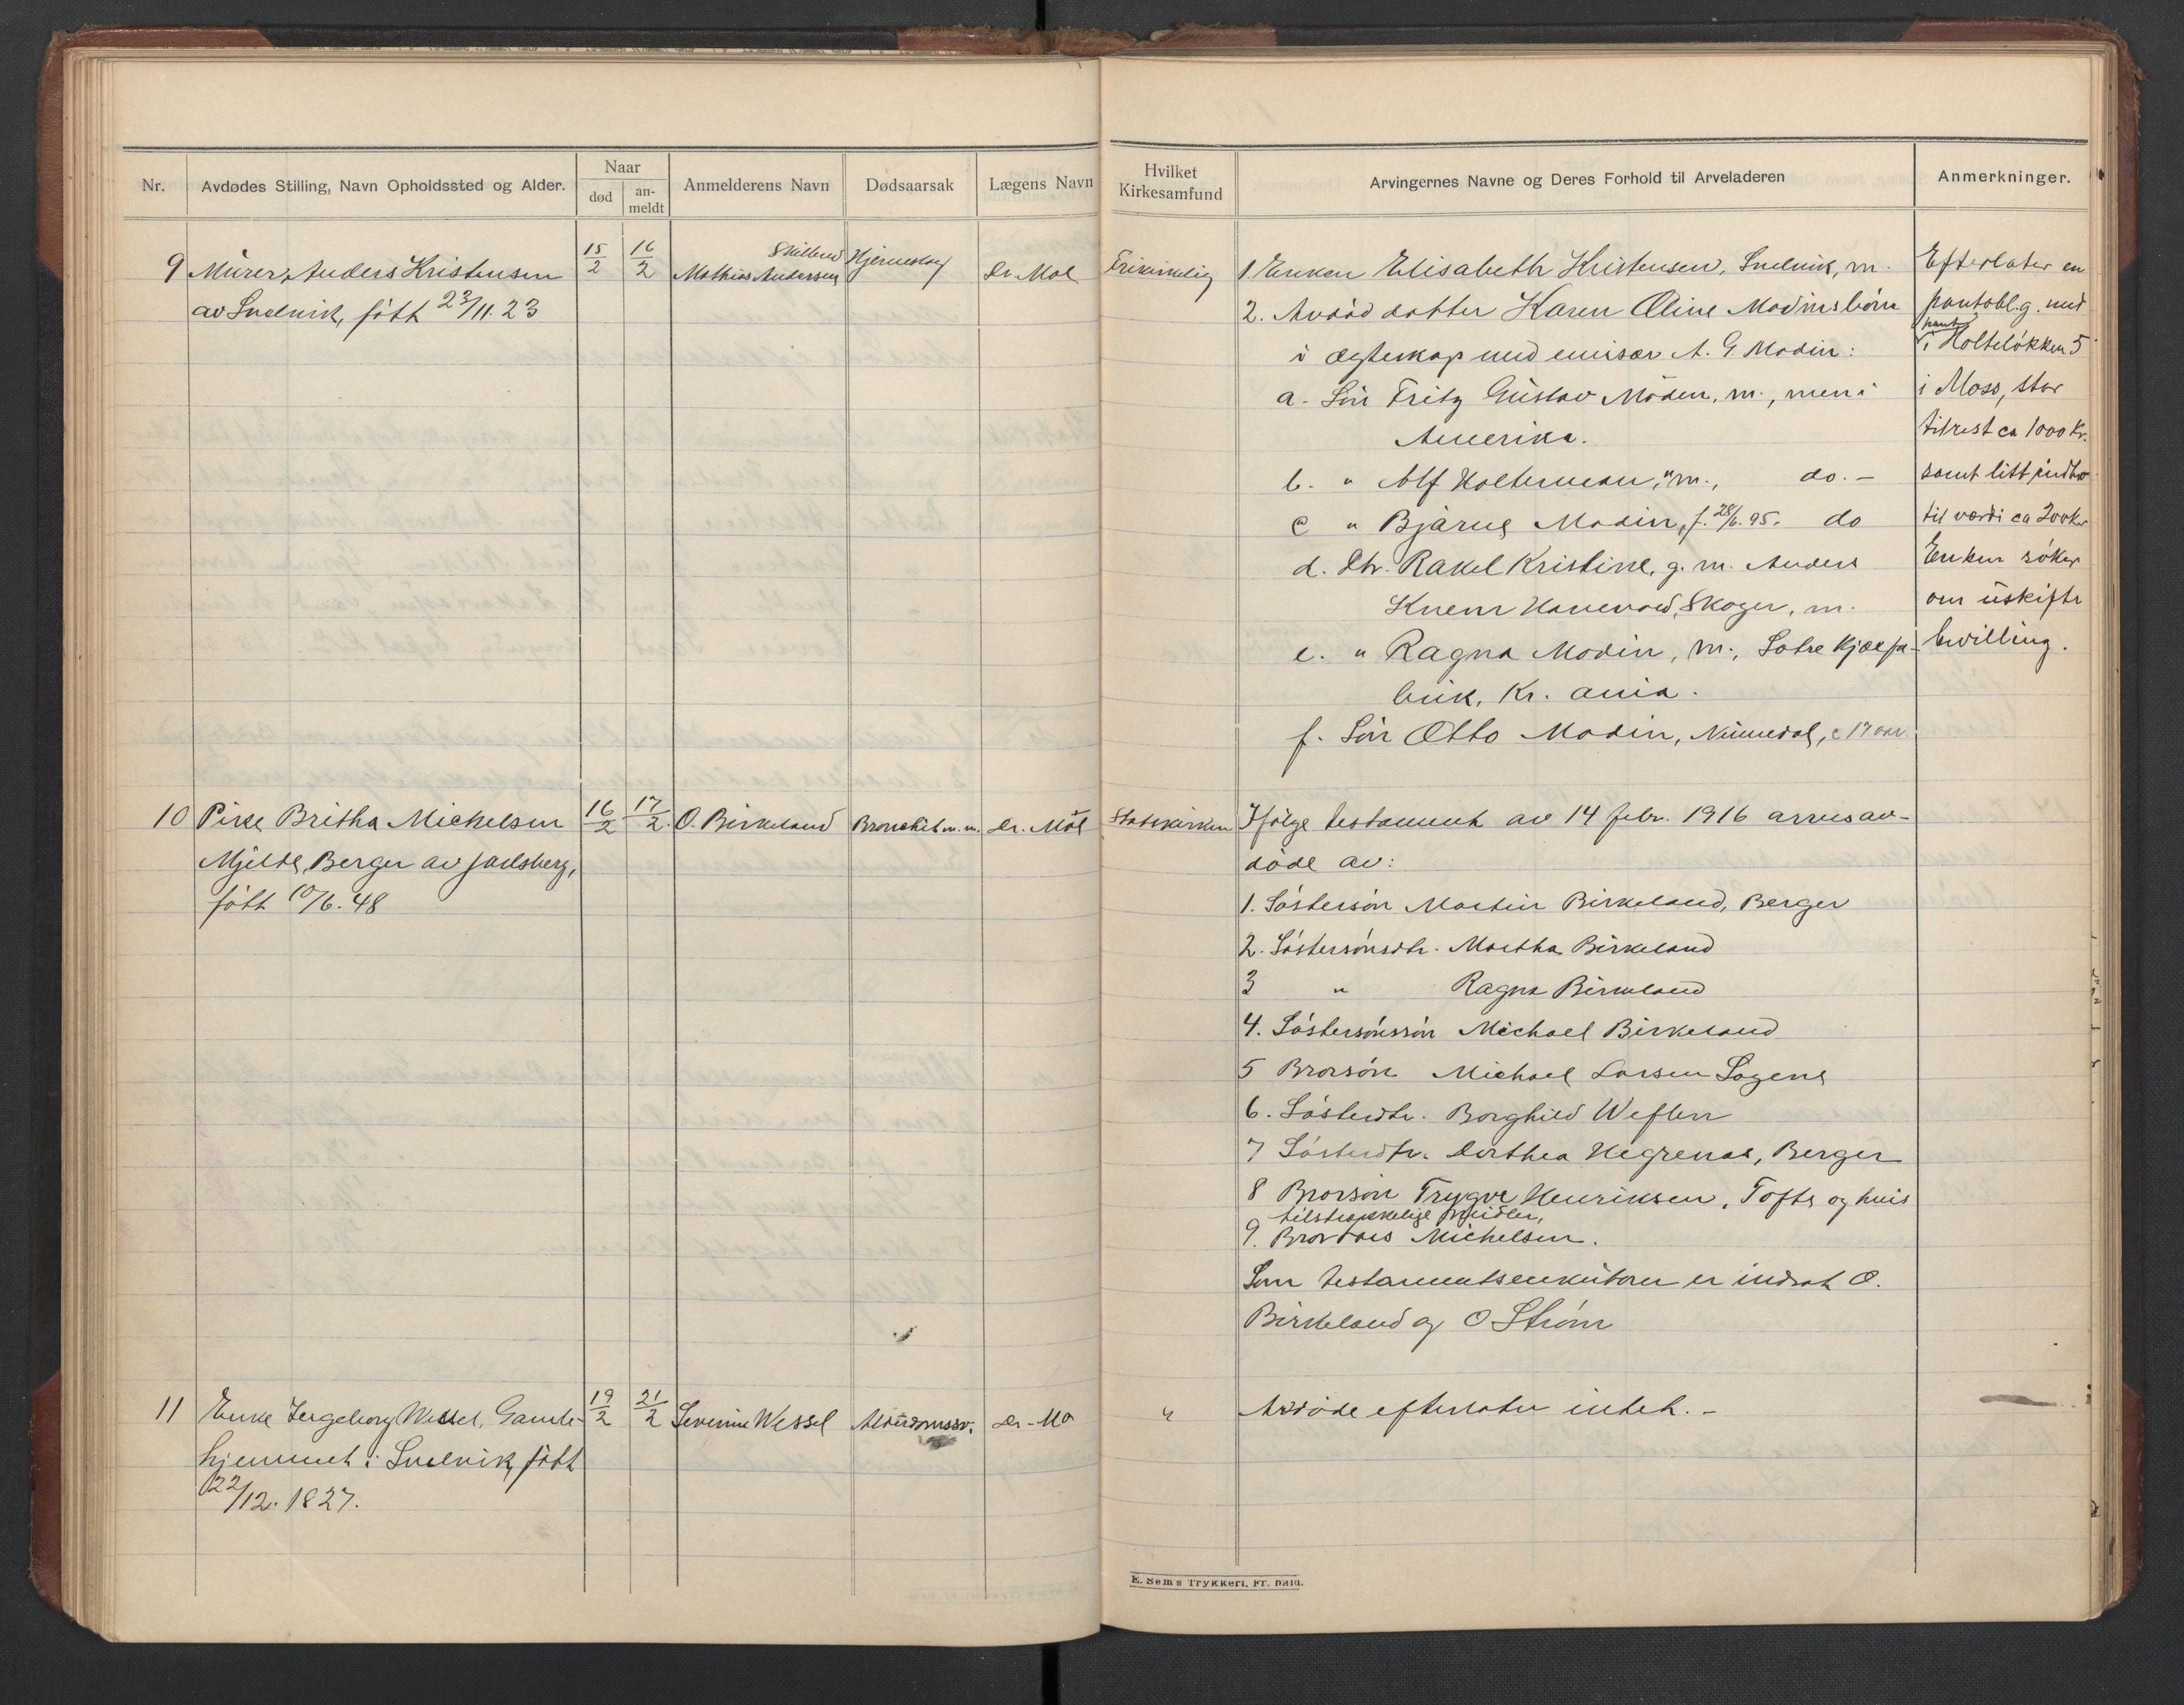 Nr.
Avdødes Stilling, Navn Opholdssted og Alder.
Naar
død
an-
meldt
Anmelderens Navn
Dødsaarsak
Lægens Navn
Hvilket
Kirkesamfund
Arvingernes Navne og Deres Forhold til Arveladeren
Anmerkninger.
9 Murer Anders Kristensen
av Svelvik, født 23/11.23
15/2
16/2
Skillerud
Mathias Andersen
Hjerneslag
Dr. Møl
Frikirkelig
1. Enken Elisabeth Kristensen, Svelvik, m.
2. Avdød datter Karen Oline Modins børn
i ægteskap med emissær A. G. Modin:
a. Søn Fritz Gustav Modin, m., men i
Amerika.
b. " Alf Holterman, " m., do. -
c " Bjarne Modin, f. 28/6.95. do
d. Dtr. Rakel Kristine, g. m. Anders
Knem Hanevold, Skoger, m.
e. " Ragna Modin, m., Sætre Kjæxfa-
brik, Kr.ania.
f. Søn Otto Modin, Numedal, c 17 aar.
Efterlater en
pantobl.g. med
pant
i Holteløkken 5
i Moss, stor
tilrest ca 1000 Kr.
samt litt indbo
til værdi ca 200 kr
Enken søker
om uskifte
bevilling.
10 Pike Britha Michelsen
Mjelde, Berger av Jarlsberg,
født 10/6.48
16/2
17/2.
O. Birkeland
Bronchit m. m.
Dr. Møl
Statskirken
Ifølge testament av 14 febr. 1916 arves av-
døde av:
1. Søstersøn Martin Birkeland, Berger
2. Søstersønsdtr. Martha Birkeland
3 " Ragna Birkeland
4. Søstersønssøn Michael Birkeland
5 Brorsøn Michael Larsen Sogene
6. Søsterdtr. Borghild Weflen
7 Søsterdtr. Dorthea Hegrenæs, Berger
8 Brorsøn Trygve Henriksen, Tofte og hvis
tilstrækkelige midler,
9. Bror Lars Michelsen.
Som testamentseksekutorer er indsat O.
Birkeland og O Strøm
11 Enke Ingeborg Wessel, Gamle-
hjemmet i Svelvik, født
22/12.1827.
19/2
21/2
Severine Wessel
Alderdomssv.
Dr. Mø
"
Avdøde efterlater intet. -
E. Sem's Trykkeri, Fr. hald.